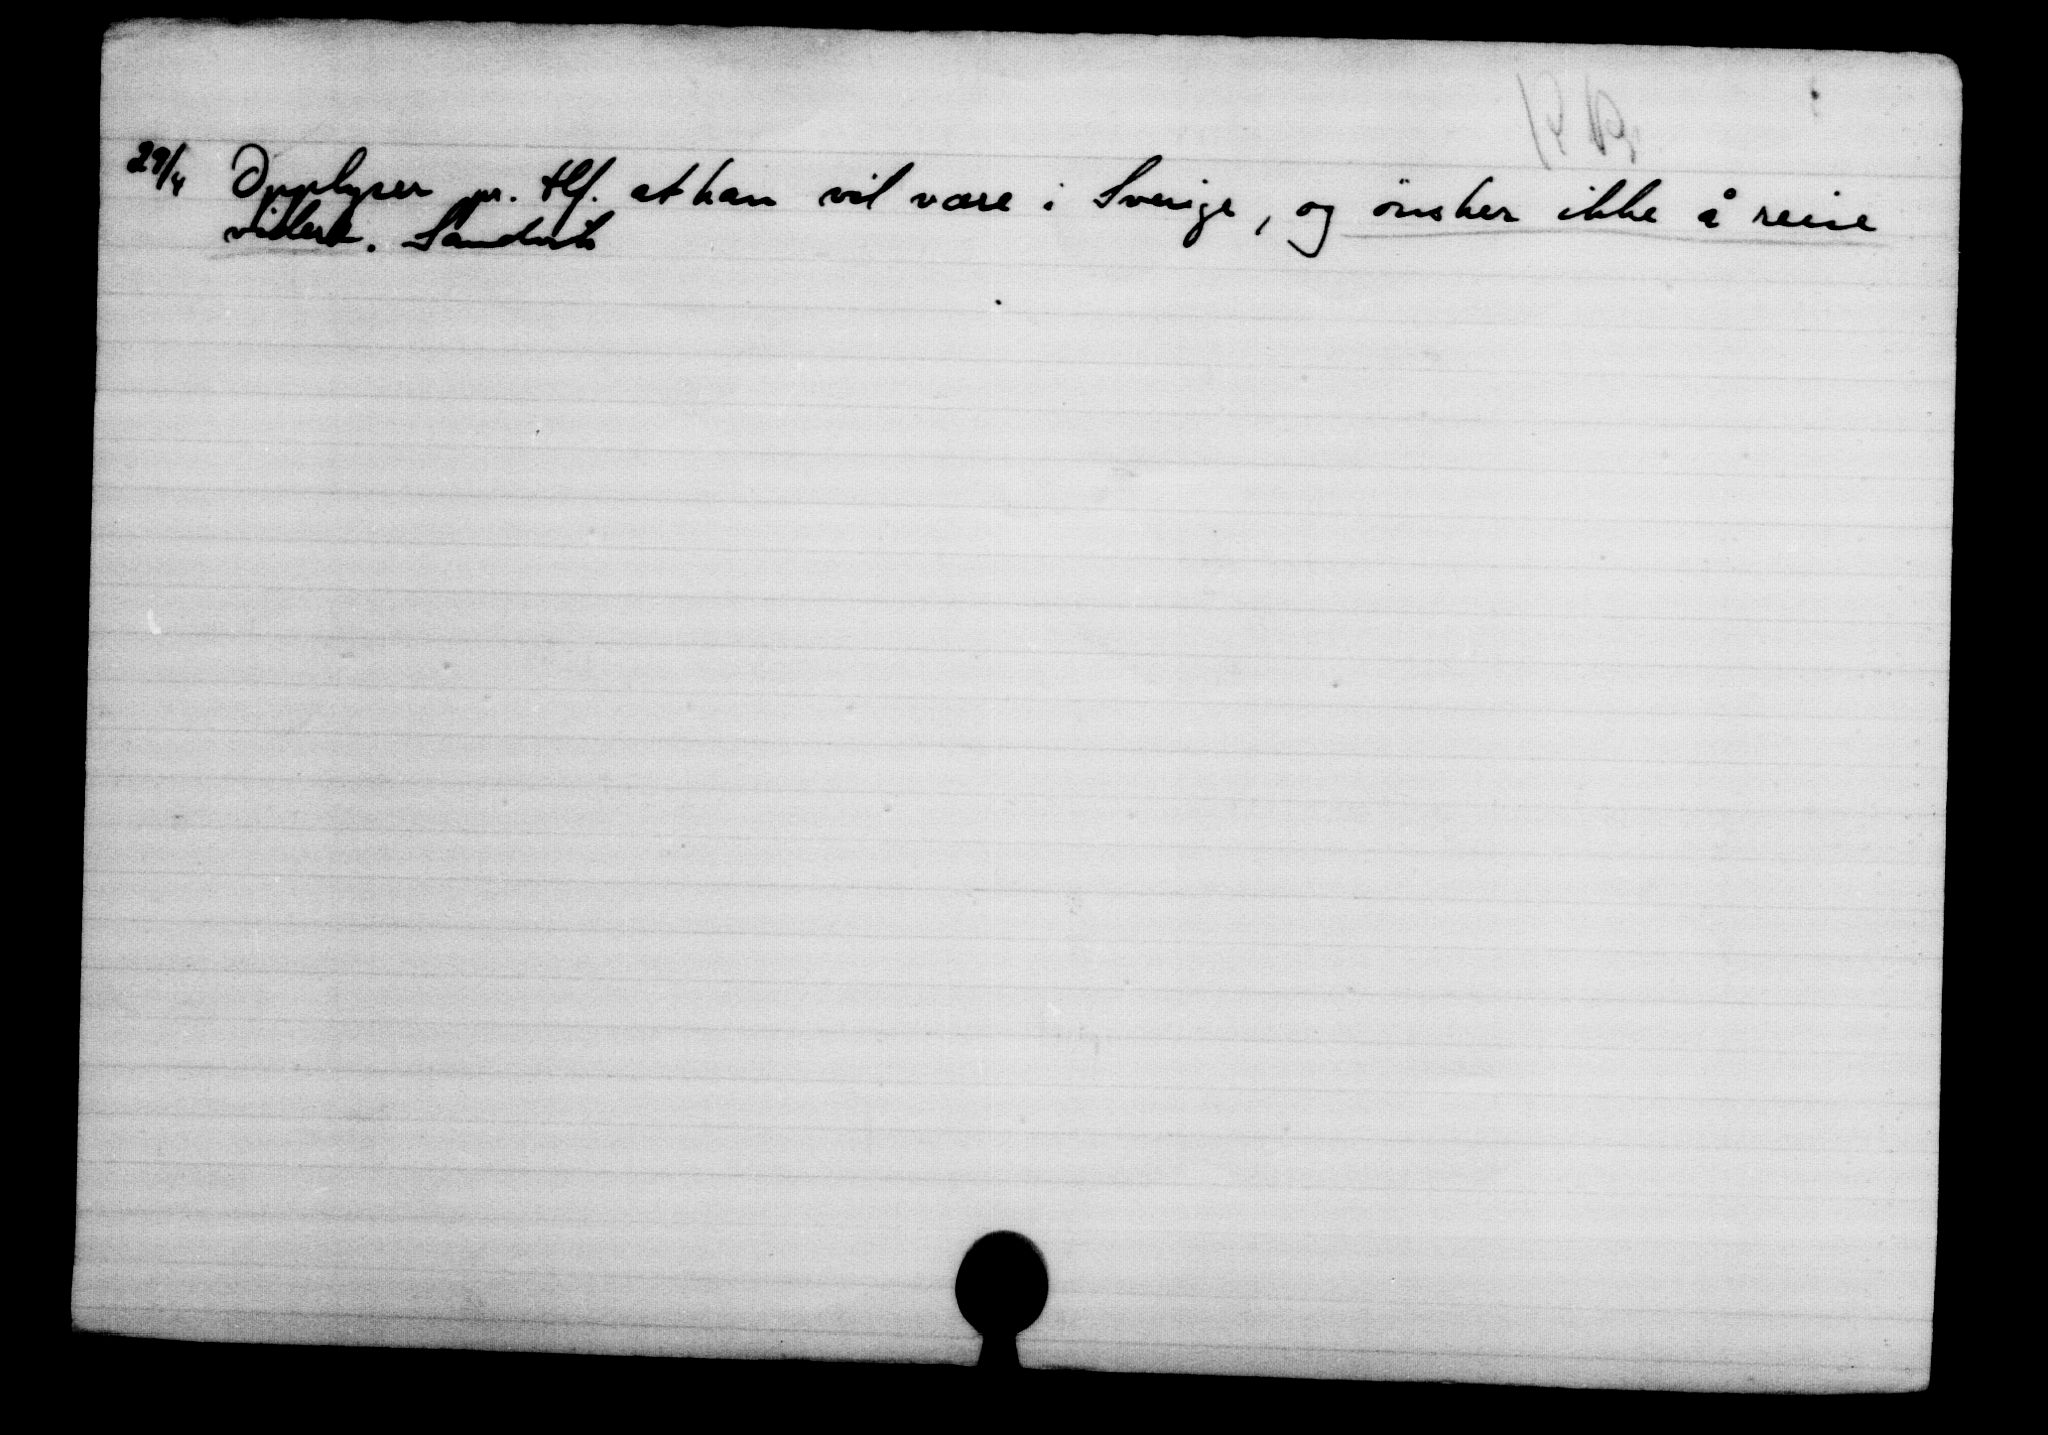 29/4 Opplyser pr. tlf. at han vil være i Sverige, og önsker ikke å reise
videre. Sandvik